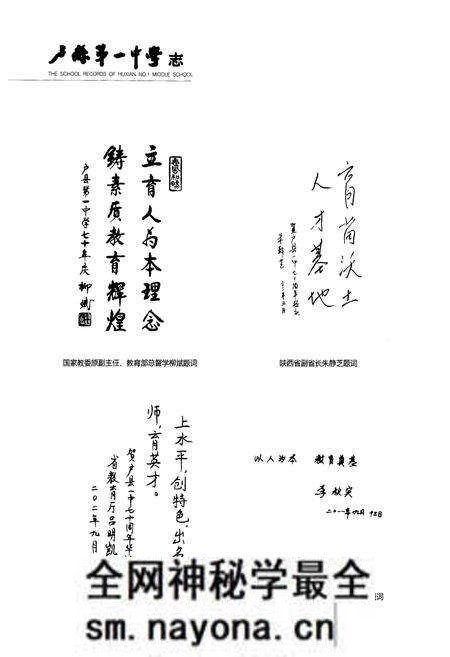 户县第一中学 志
THE SCHOOL RECORDS OF HUXIAN NO.1 MIDDLE SCHOOL
立育人为本理念
铸素质教育辉煌
户县第一中学七十年庆 柳斌
育苗沃土
人才基地
国家教委原副主任、教育部总督学柳斌题词
陕西省副省长朱静芝题词
上水平,创特色,出名
师,育英才。
贺户县一中七十周年华
省教育厅吕明凯
二〇一一年九月
以人为本 教育奠基
李
二〇一一年九月
词
全网神秘学最全
sm.nayona.cn